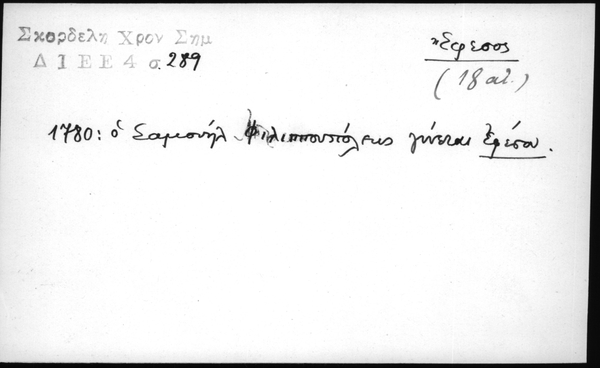 Σκορδελη Χρον Σημ
Ἔφεσος
Δ Ι Ε Ε 4 σ. 289
(18 αἰ.)
1780: ὁ Σαμουήλ Φιλιππουπόλεως γίνεται Ἐφέσου.